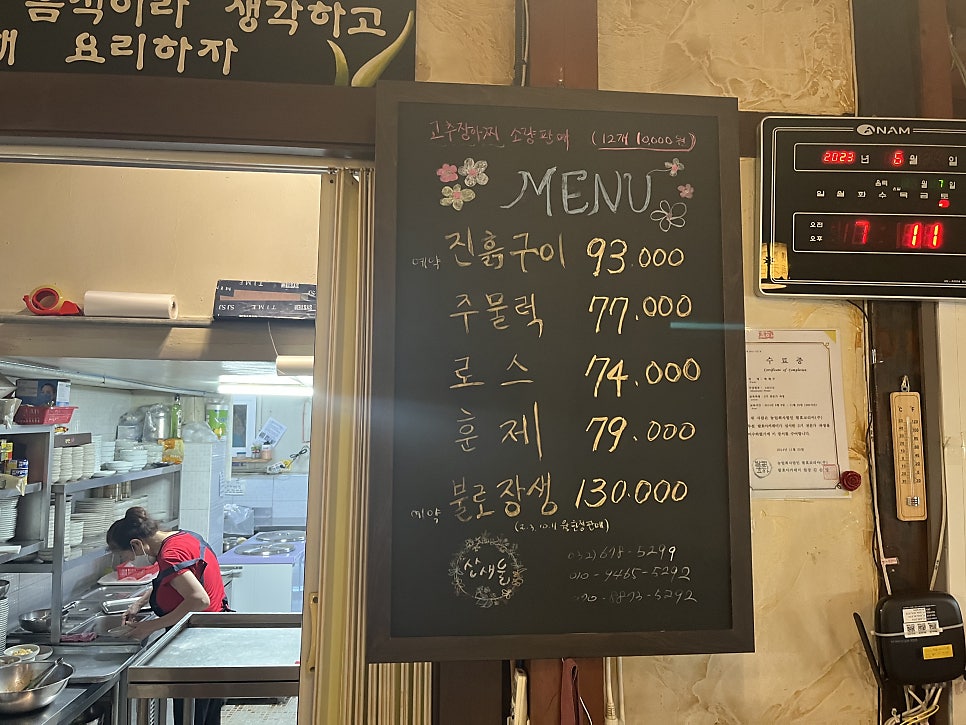 음식이라 생각하고
요리하자
고추장아찌 소량판매 (12개 10,000원)
MENU
예약 진흙구이 93.000
주물럭 77.000
로스 74.000
훈제 79.000
예약 불로장생 130.000
산새들
032) 678-5299
010-9465-5292
010-8873-5292
ANAM
2023 년 6
음력 7 일
일 월 화 수 목 금 토
오전
오후
7 11
수료증
Certificate of Completion
TIME
C F